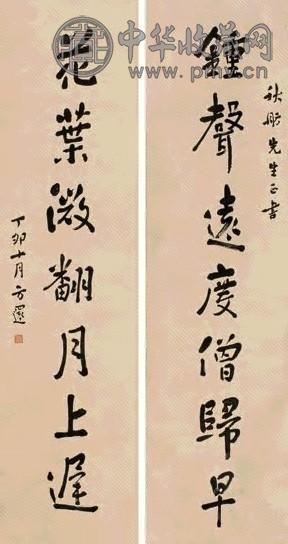 秋舫先生正書
鐘聲遠度僧歸早
花葉微翻月上遲
丁卯十月方還
中华收藏网
www.pmsc.cn